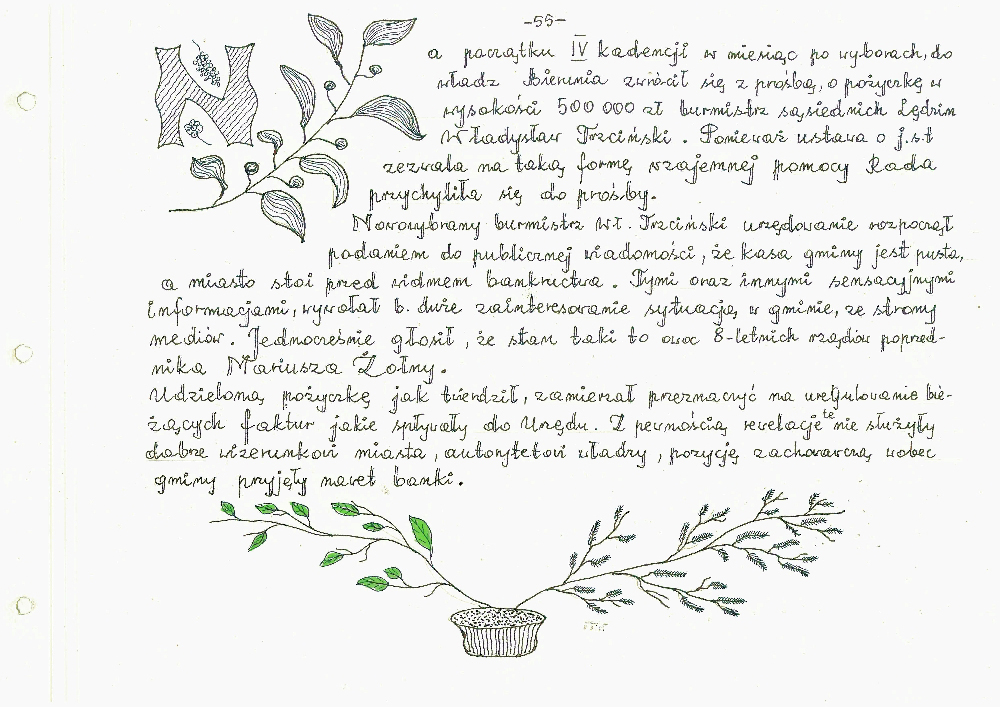 -55-
Na początku IV kadencji w miesiąc po wyborach, do
władz Bierunia zwrócił się z prośbą, o pożyczkę w
wysokości 500 000 zł burmistrz sąsiednich Lędzin
Władysław Trzciński. Ponieważ ustawa o j.s.t
zezwala na taką formę wzajemnej pomocy Rada
przychyliła się do prośby.
Nowowybrany burmistrz Wł. Trzciński urzędowanie rozpoczął
podaniem do publicznej wiadomości, że kasa gminy jest pusta,
a miasto stoi przed widmem bankructwa. Tymi oraz innymi sensacyjnymi
informacjami, wywołał b. duże zainteresowanie sytuacją w gminie, ze strony
mediów. Jednocześnie głosił, że stan taki to owoc 8-letnich rządów poprzed-
nika Mariusza Żołny.
Udzieloną pożyczkę jak twierdził, zamierzał przeznaczyć na uregulowanie bie-
żących faktur jakie spływały do Urzędu. Z pewnością rewelacje te nie służyły
dobrze wizerunkowi miasta, autorytetowi władzy, pozycję zachowawczą wobec
gminy przyjęły nawet banki.